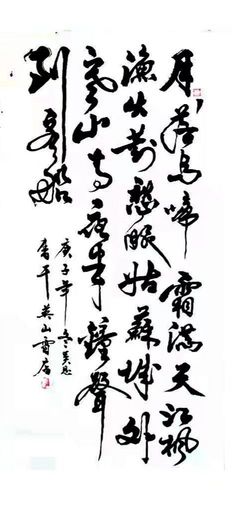 月落烏啼霜滿天江楓
漁火對愁眠姑蘇城外
寒山寺夜半鐘聲
到客船
庚子年冬
書于英山